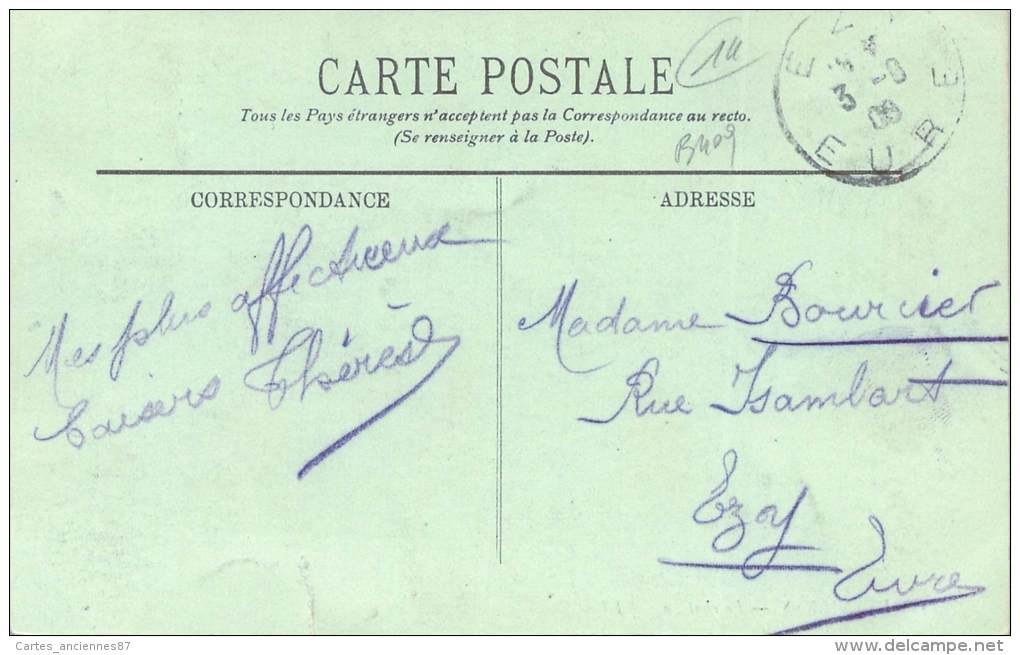 CARTE POSTALE
14
Tous les Pays étrangers n'acceptent pas la Correspondance au recto.
(Se renseigner à la Poste).
EV
E
3
-9
09
EURE
CORRESPONDANCE
ADRESSE
Mes plus affectueux
baisers Thérèse
Madame Bourcier
Rue Isambart
Ezy
Eure
Cartes_anciennes87
www.delcampe.net